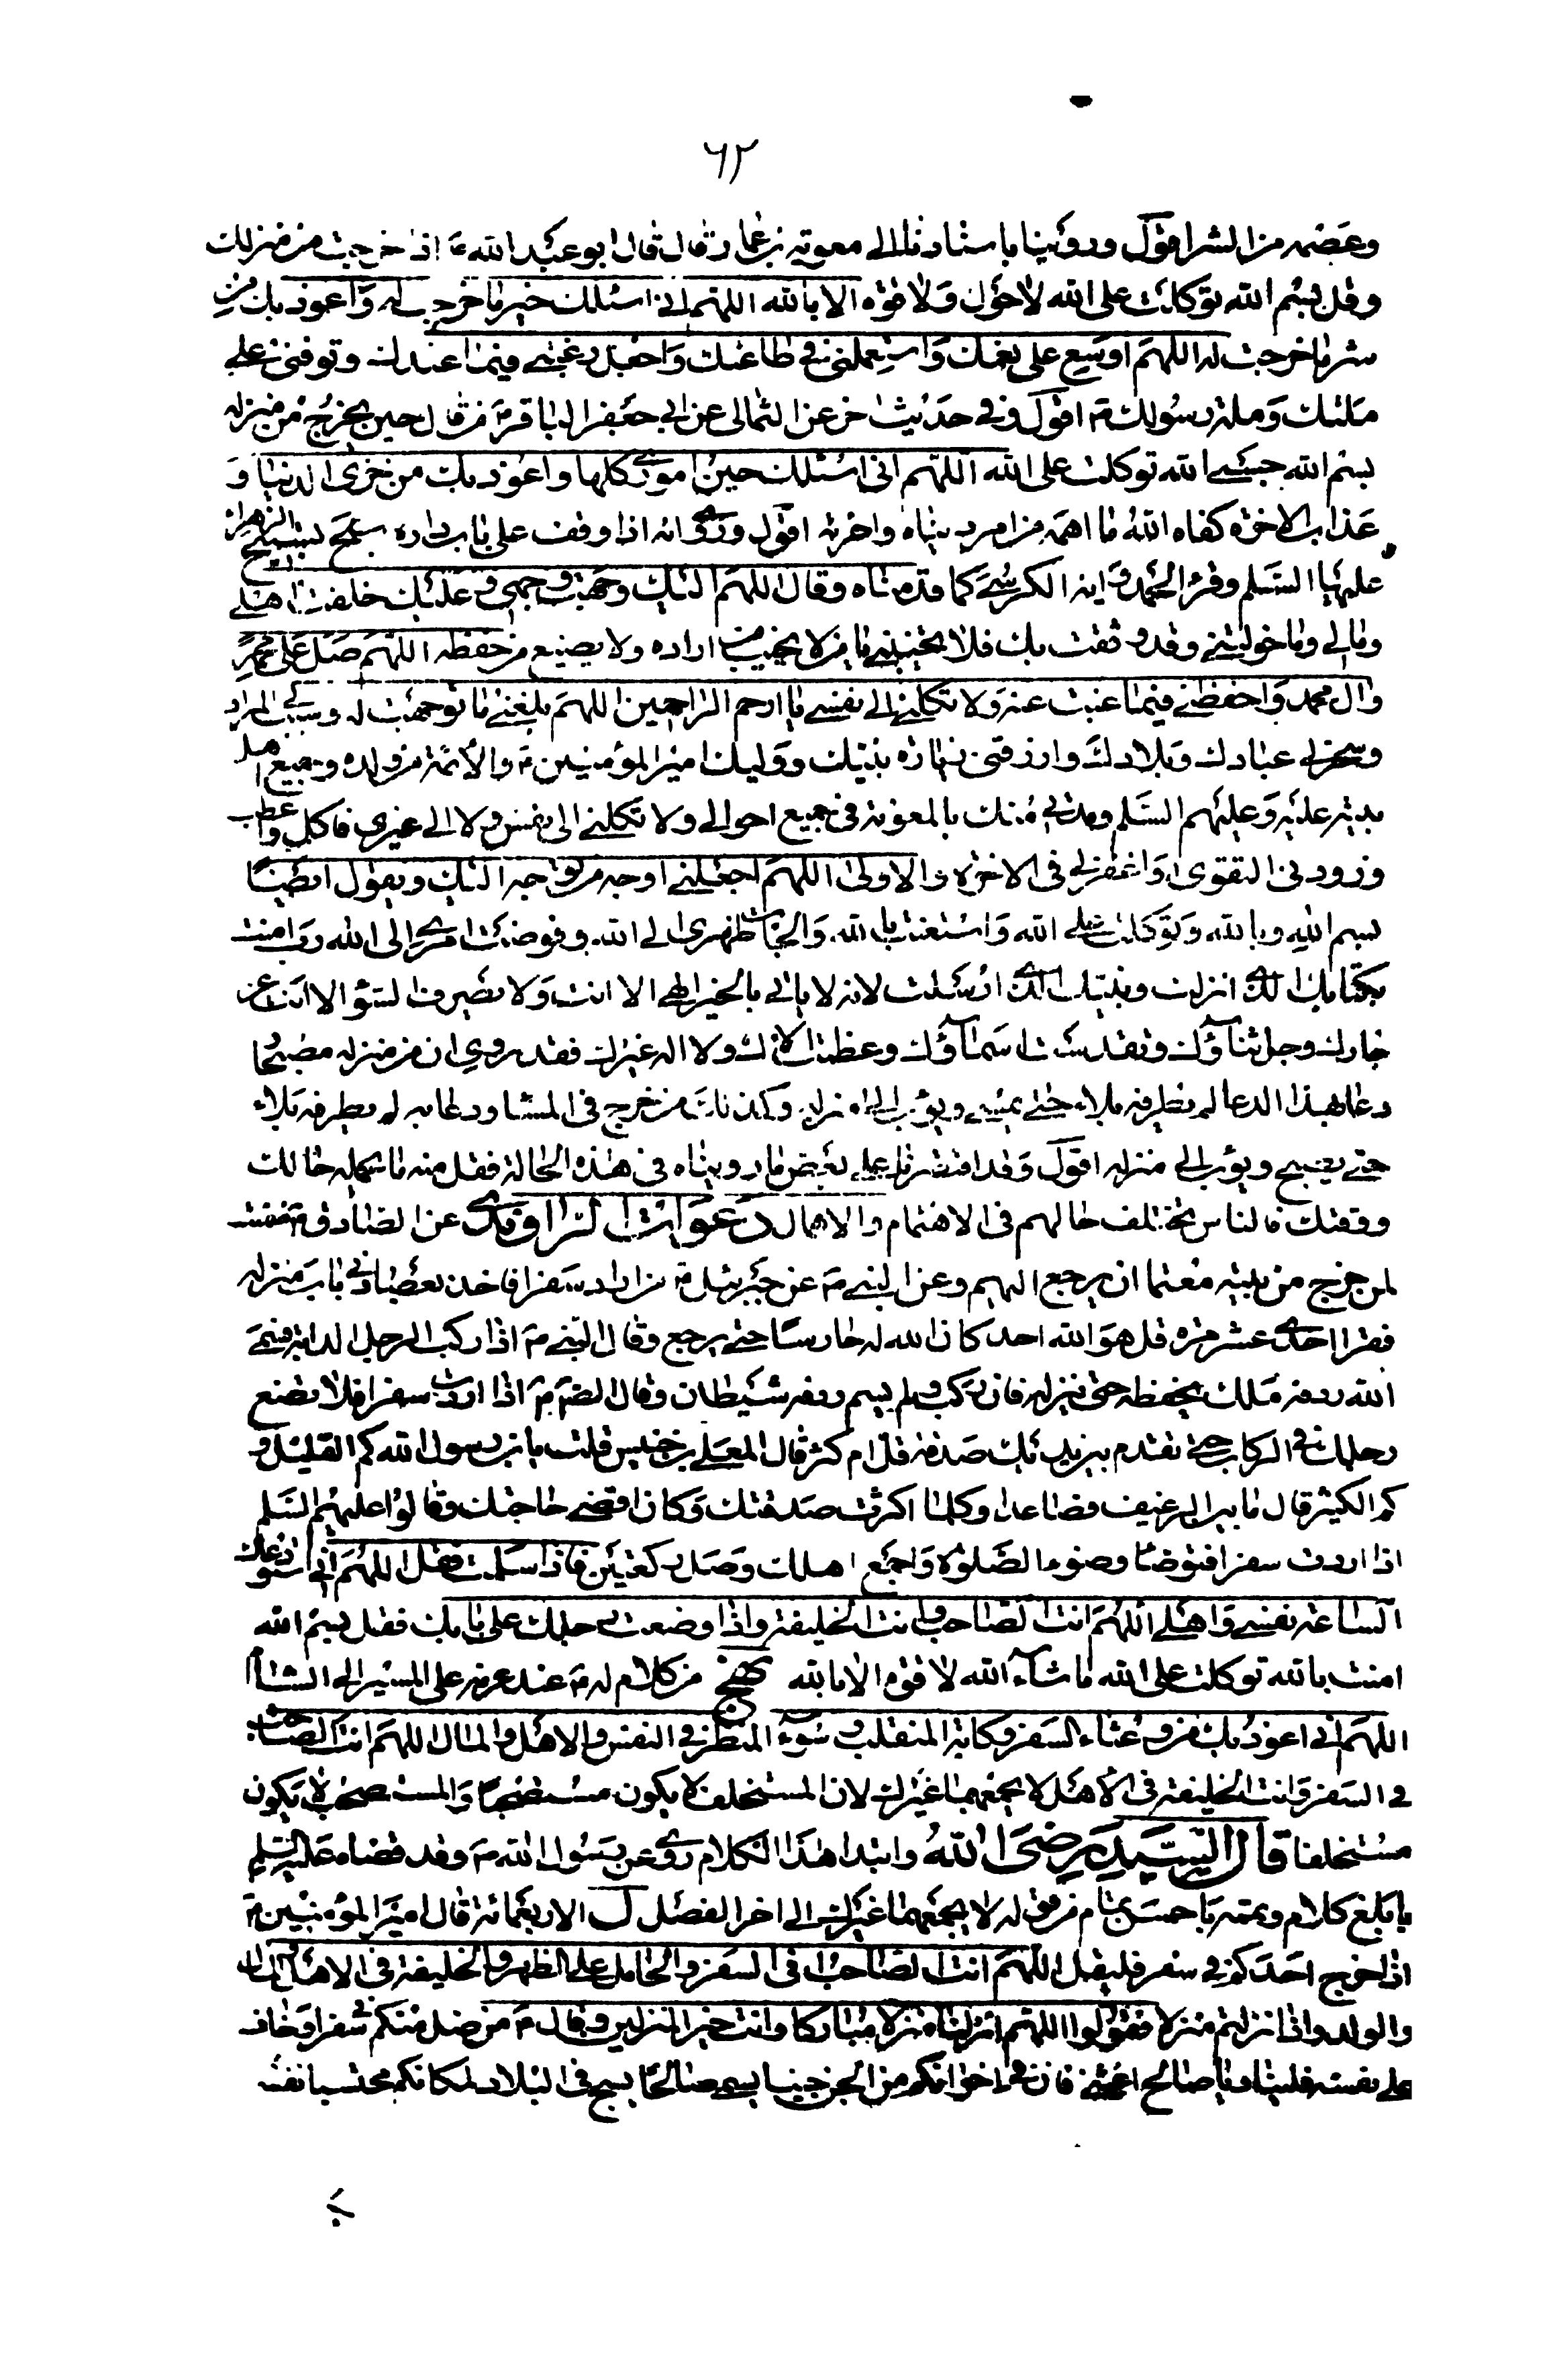 ٦٢
وعصمه من الشر اقول وروينا باسنادنا الى معوية بن عمار قال قال ابو عبد الله ع اذا خرجت من منزلك
وقل بسم الله توكلت على الله لا حول ولا قوة الا بالله اللهم انى اسئلك خير ما خرجت له واعوذ بك من
شر ما خرجت له اللهم اوسع على من فضلك واستعملنى فى طاعتك واجعل رغبتى فيما عندك وتوفنى على
ملتك وملة رسولك ص اقول وفى حديث اخر عن الثمالى عن ابى جعفر الباقر ع من قال حين يخرج من منزله
بسم الله حسبى الله توكلت على الله اللهم انى اسئلك خير امورى كلها واعوذ بك من خزى الدنيا و
عذاب الاخرة كفاه الله ما اهمه من امر دنياه واخرته اقول وروى انه اذا وقف على باب داره سبح تسبيح الزهراء
عليها السلم وقرء الحمد واية الكرسى كما قدمناه وقال اللهم اليك وجهت وجهى وعليك خلفت اهلى
ومالى وما خولتنى وقد وثقت بك فلا تخيبنى يا من لا يخيب من اراده ولا يضيع من حفظه اللهم صل على محمد
وال محمد واحفظنى فيما غبت عنه ولا تكلنى الى نفسى يا ارحم الراحمين اللهم بلغنى ما توجهت له وسبب لى المراد
وسخر لى عبادك وبلادك وارزقنى زيارة نبيك ووليك امير المؤمنين ع والأئمة من ولده وجميع اهل
بيته عليه وعليهم السلم ومدنى منك بالمعونة فى جميع احوالى ولا تكلنى الى نفسى ولا الى غيرى فاكل واعطب
وزودنى التقوى واغفر لى فى الاخرة والاولى اللهم اجعلنى اوجه من توجه اليك ويقول ايضا
بسم الله وبالله وتوكلت على الله واستعنت بالله والجأت ظهرى الى الله وفوضت امرى الى الله رب امنت
بكتابك الذى انزلت ونبيك الذى ارسلت لانه لا ياتى بالخير الهى الا انت ولا يصرف السوء الا انت عز
جارك وجل ثناؤك وتقدست اسماؤك وعظمت الاؤك ولا اله غيرك فقد روى ان من خرج من منزله مصبحا
ودعا بهذا الدعا لم يطرقه بلاء حتى يمسى ويؤب الى منزله وكذلك من خرج فى المسا ودعا به لم يطرقه بلاء
حتى يصبح ويؤب الى منزله اقول وقد اقتصرنا على بعض ما رويناه فى هذه الحالة فقل منه ما يحمله حالك
ووقتك فالناس تختلف حالهم فى الاهتمام والاهمال دعوات الراوندى عن الصادق ع
لمن خرج من بيته معتما ان يرجع اليهم وعن النبى ص عن جبرئيل ع من اراد سفرا فاخذ بعضادتى باب منزله
فقرا احدى عشر مرة قل هو الله احد كان الله له حارسا حتى يرجع وقال النبى ص اذا ركب الرجل الدابة فسمى
الله ردفه ملك يحفظه حتى ينزل فان ركب ولم يسم ردفه شيطان وقال الصادق ع اذا اردت سفرا فلا تضع
رجلك فى الركاب حتى تقدم بين يديك صدقة قل ام كثر قال المعلى بن خنيس قلت يا بن رسول الله كم القليل و
كم الكثير قال ما بين الرغيف فصاعدا وكلما اكثرت صدقتك وكان اقضى حاجتك وقالوا عليهم السلم
اذا اردت سفرا فتوضا وضوء الصلوة واجمع اهلك وصل ركعتين فاذا سلمت فقل اللهم انى استودعك
الساعة نفسى واهلى اللهم انت الصاحب وانت الخليفة واذا وضعت رجلك على بابك فقل بسم الله
امنت بالله توكلت على الله ما شاء الله لا قوة الا بالله نهج من كلام له ع عند عزمه على المسير الى الشام
اللهم انى اعوذ بك من وعثاء السفر وكابة المنقلب وسوء المنظر فى النفس والاهل والمال اللهم انت الصاحب
فى السفر وانت الخليفة فى الاهل لا يجمعهما غيرك لان المستخلف لا يكون مستصحبا والمستصحب لا يكون
مستخلفا قال السيد رضى الله وابتدا هذا الكلام روى عن رسول الله ص وقد قفاه عليه السلم
بابلغ كلام وتممه باحسن تمام من قوله لا يجمعهما غيرك الى اخر الفصل ل الاربعمائة قال امير المؤمنين ع
اذا خرج احدكم فى سفر فليقل اللهم انت الصاحب فى السفر والحامل على الظهر والخليفة فى الاهل والمال
والولد واذا نزلتم منزلا فقولوا اللهم انزلنا منزلا مباركا وانت خير المنزلين وقال ع من ضل منكم فى سفر او خاف
على نفسه فليناد يا صالح اغثنى فان فى اخوانكم من الجن جنيا يسمى صالحا يسيح فى البلاد لمكانكم محتسبا نفسه